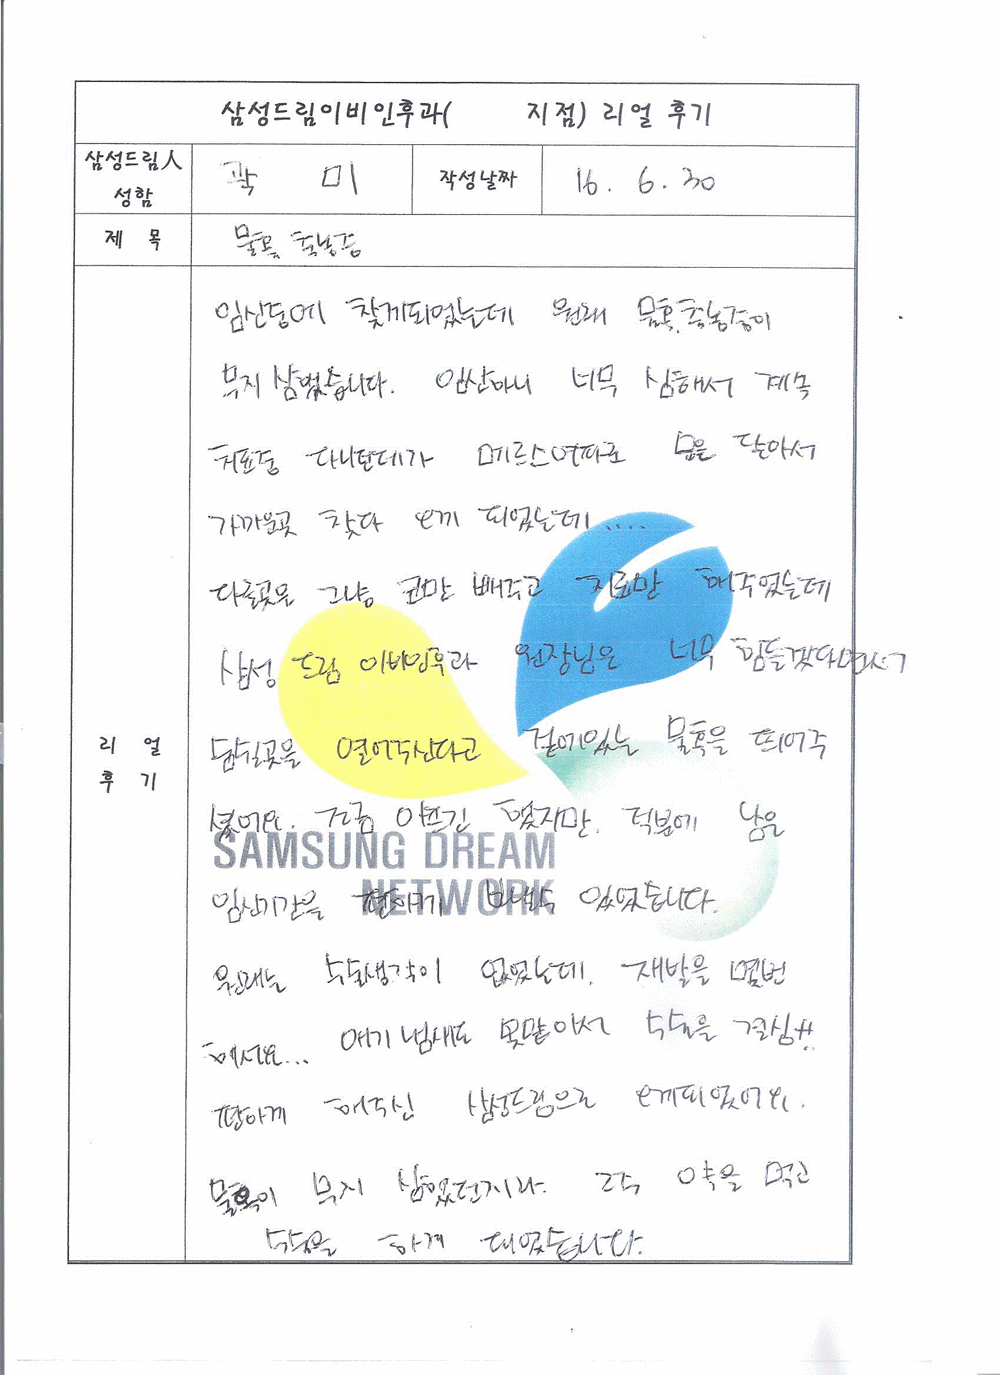 삼성드림이비인후과( 지점) 리얼 후기
삼성드림人 성함 곽 미 작성날짜 16. 6. 30
제 목 물혹 축농증
임산중에 찾게되었는데 원래 물혹, 축농증이
무지 심했습니다. 임산하니 너무 심해서 계속
치료중 다니던데가 메르스여파로 문을 닫아서
가까운곳 찾다 오게 되었는데....
다른곳은 그냥 코만 빼주고 치료만 해주었는데
삼성 드림 이비인후과 원장님은 너무 힘들겠다면서
숨쉴곳을 열어주신다고 겉에있는 물혹을 띄어주
셨어요. 조금 아프긴 했지만, 덕분에 남은
임산기간을 편하게 보낼수 있었습니다.
SAMSUNG DREAM
NETWORK
원래는 수술생각이 없었는데, 재발을 몇번
해서요... 애기 냄새도 못맡아서 수술을 결심!!
편하게 해주신 삼성드림으로 오게되었어요.
물혹이 무지 심했던지라 2주 약을 먹고
수술을 하게 되었습니다.
리 얼
후 기